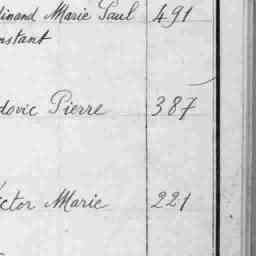 dinand Marie Paul 491
nstant
dovic Pierre 387
ictor Marie 221